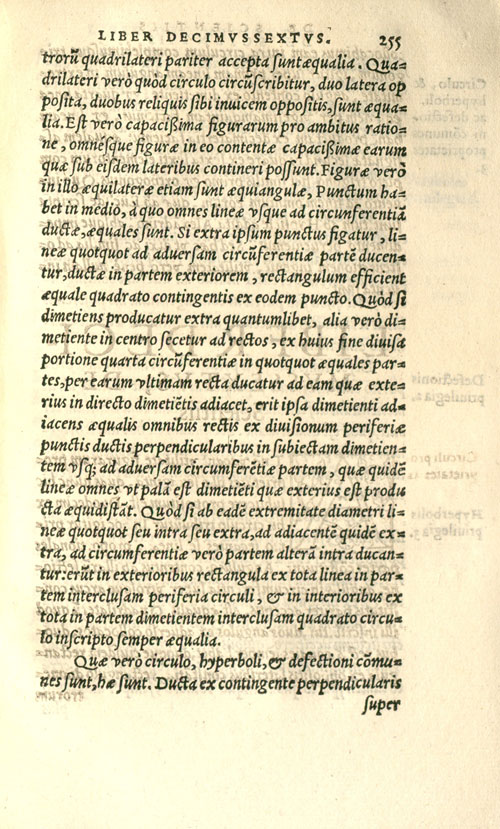 LIBER DECIMVSSEXTVS. 255
trorū quadrilateri pariter accepta sunt æqualia. Qua=
drilateri verò quòd circulo circūscribitur, duo latera op
posita, duobus reliquis sibi inuicem oppositis, sunt æqua=
lia. Est verò capacißima figurarum pro ambitus ratio=
ne, omnésque figuræ in eo contentæ capacißimæ earum
quæ sub eisdem lateribus contineri possunt. Figuræ verò
in illo æquilateræ etiam sunt æquiangulæ, Punctum ha=
bet in medio, à quo omnes lineæ vsque ad circunferentiā
ductæ, æquales sunt. Si extra ipsum punctus figatur, li=
neæ quotquot ad aduersam circūferentiæ partē ducen=
tur, ductæ in partem exteriorem, rectangulum efficient
æquale quadrato contingentis ex eodem puncto. Quòd si
dimetiens producatur extra quantumlibet, alia verò di=
metiente in centro secetur ad rectos, ex huius fine diuisa
portione quarta circūferentiæ in quotquot æquales par=
tes, per earum vltimam recta ducatur ad eam quæ exte=
rius in directo dimetiētis adiacet, erit ipsa dimetienti ad=
iacens æqualis omnibus rectis ex diuisionum periferiæ
punctis ductis perpendicularibus in subiectam dimetien=
tem vsq; ad aduersam circumferētiæ partem, quæ quidē
lineæ omnes vt palā est dimetiēti quæ exterius est produ
cta æquidistāt. Quòd si ab eadē extremitate diametri li=
neæ quotquot seu intra seu extra, ad adiacentē quidē ex=
tra, ad circumferentiæ verò partem alterā intra ducan=
tur: erūt in exterioribus rectangula ex tota linea in par=
tem interclusam periferia circuli, & in interioribus ex
tota in partem dimetientem interclusam quadrato circu=
lo inscripto semper æqualia.
Quæ verò circulo, hyperboli, & defectioni cōmu=
nes sunt, hæ sunt. Ducta ex contingente perpendicularis
super